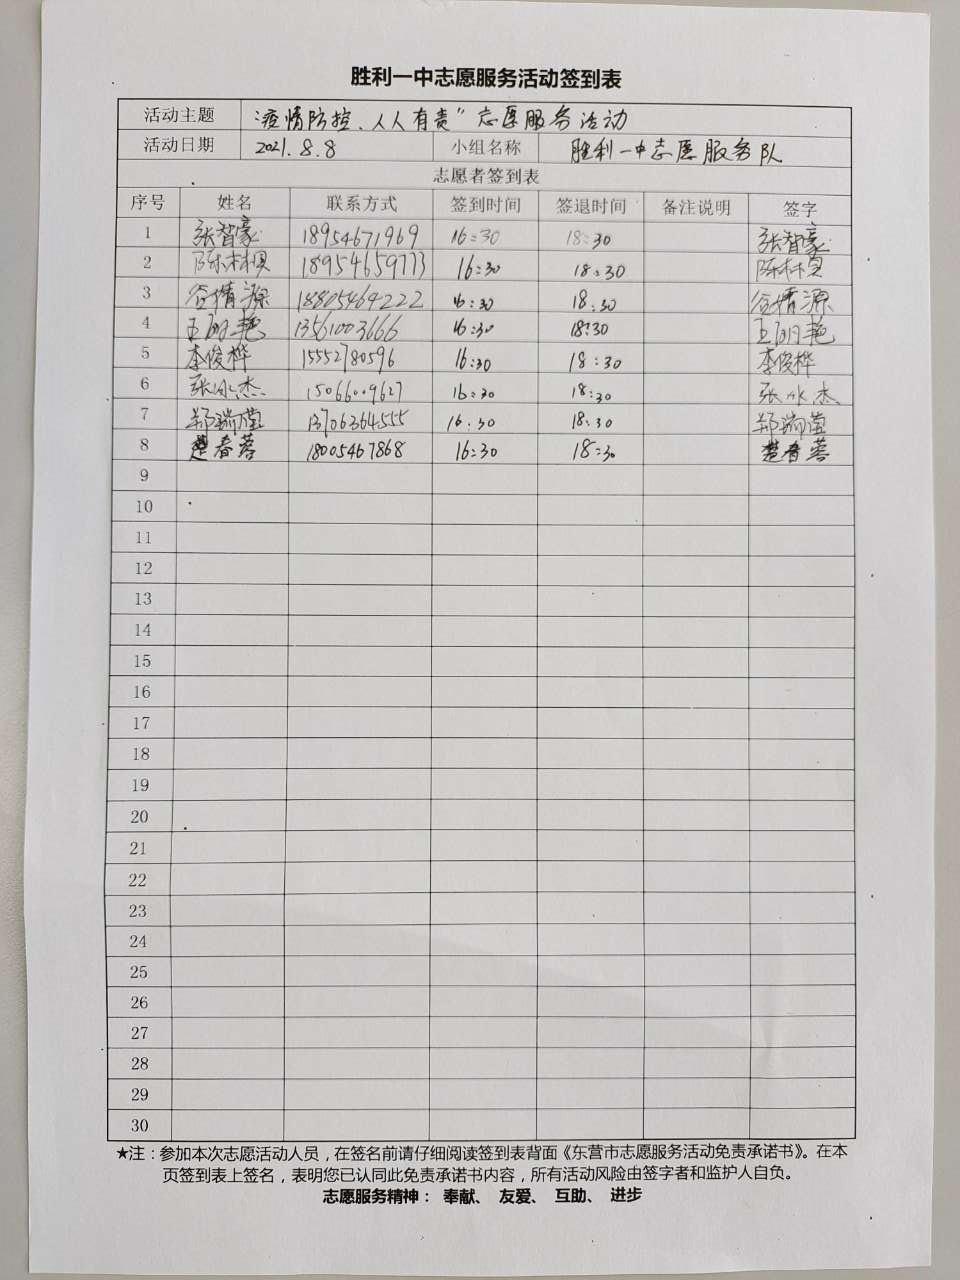 胜利一中志愿服务活动签到表
活动主题 “疫情防控、人人有责”志愿服务活动
活动日期 2021.8.8 小组名称 胜利一中志愿服务队
志愿者签到表
序号 姓名 联系方式 签到时间 签退时间 备注说明 签字
1 张智豪 18954671969 16:30 18:30 张智豪
2 18954659773 16:30 18:30
3 18805464222 16:30 18:30
4 王丽艳 13561003666 16:30 18:30 王丽艳
5 李俊桦 15552780596 16:30 18:30 李俊桦
6 张冰杰 15066009627 16:30 18:30 张冰杰
7 郑瑞莹 13706364555 16:30 18:30 郑瑞莹
8 楚春蓉 18005467868 16:30 18:30 楚春蓉
9
10
11
12
13
14
15
16
17
18
19
20
21
22
23
24
25
26
27
28
29
30
★注：参加本次志愿活动人员，在签名前请仔细阅读签到表背面《东营市志愿服务活动免责承诺书》。在本
页签到表上签名，表明您已认同此免责承诺书内容，所有活动风险由签字者和监护人自负。
志愿服务精神： 奉献、 友爱、 互助、 进步